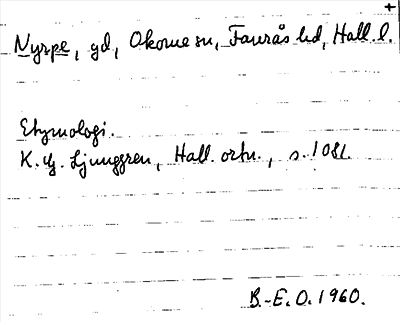 Nyrpe, gd, Okome sn, Faurås hd, Hall. l.
Etymologi.
K. G. Ljunggren, Hall. ortn., s. 108.
B.-E. O. 1960.